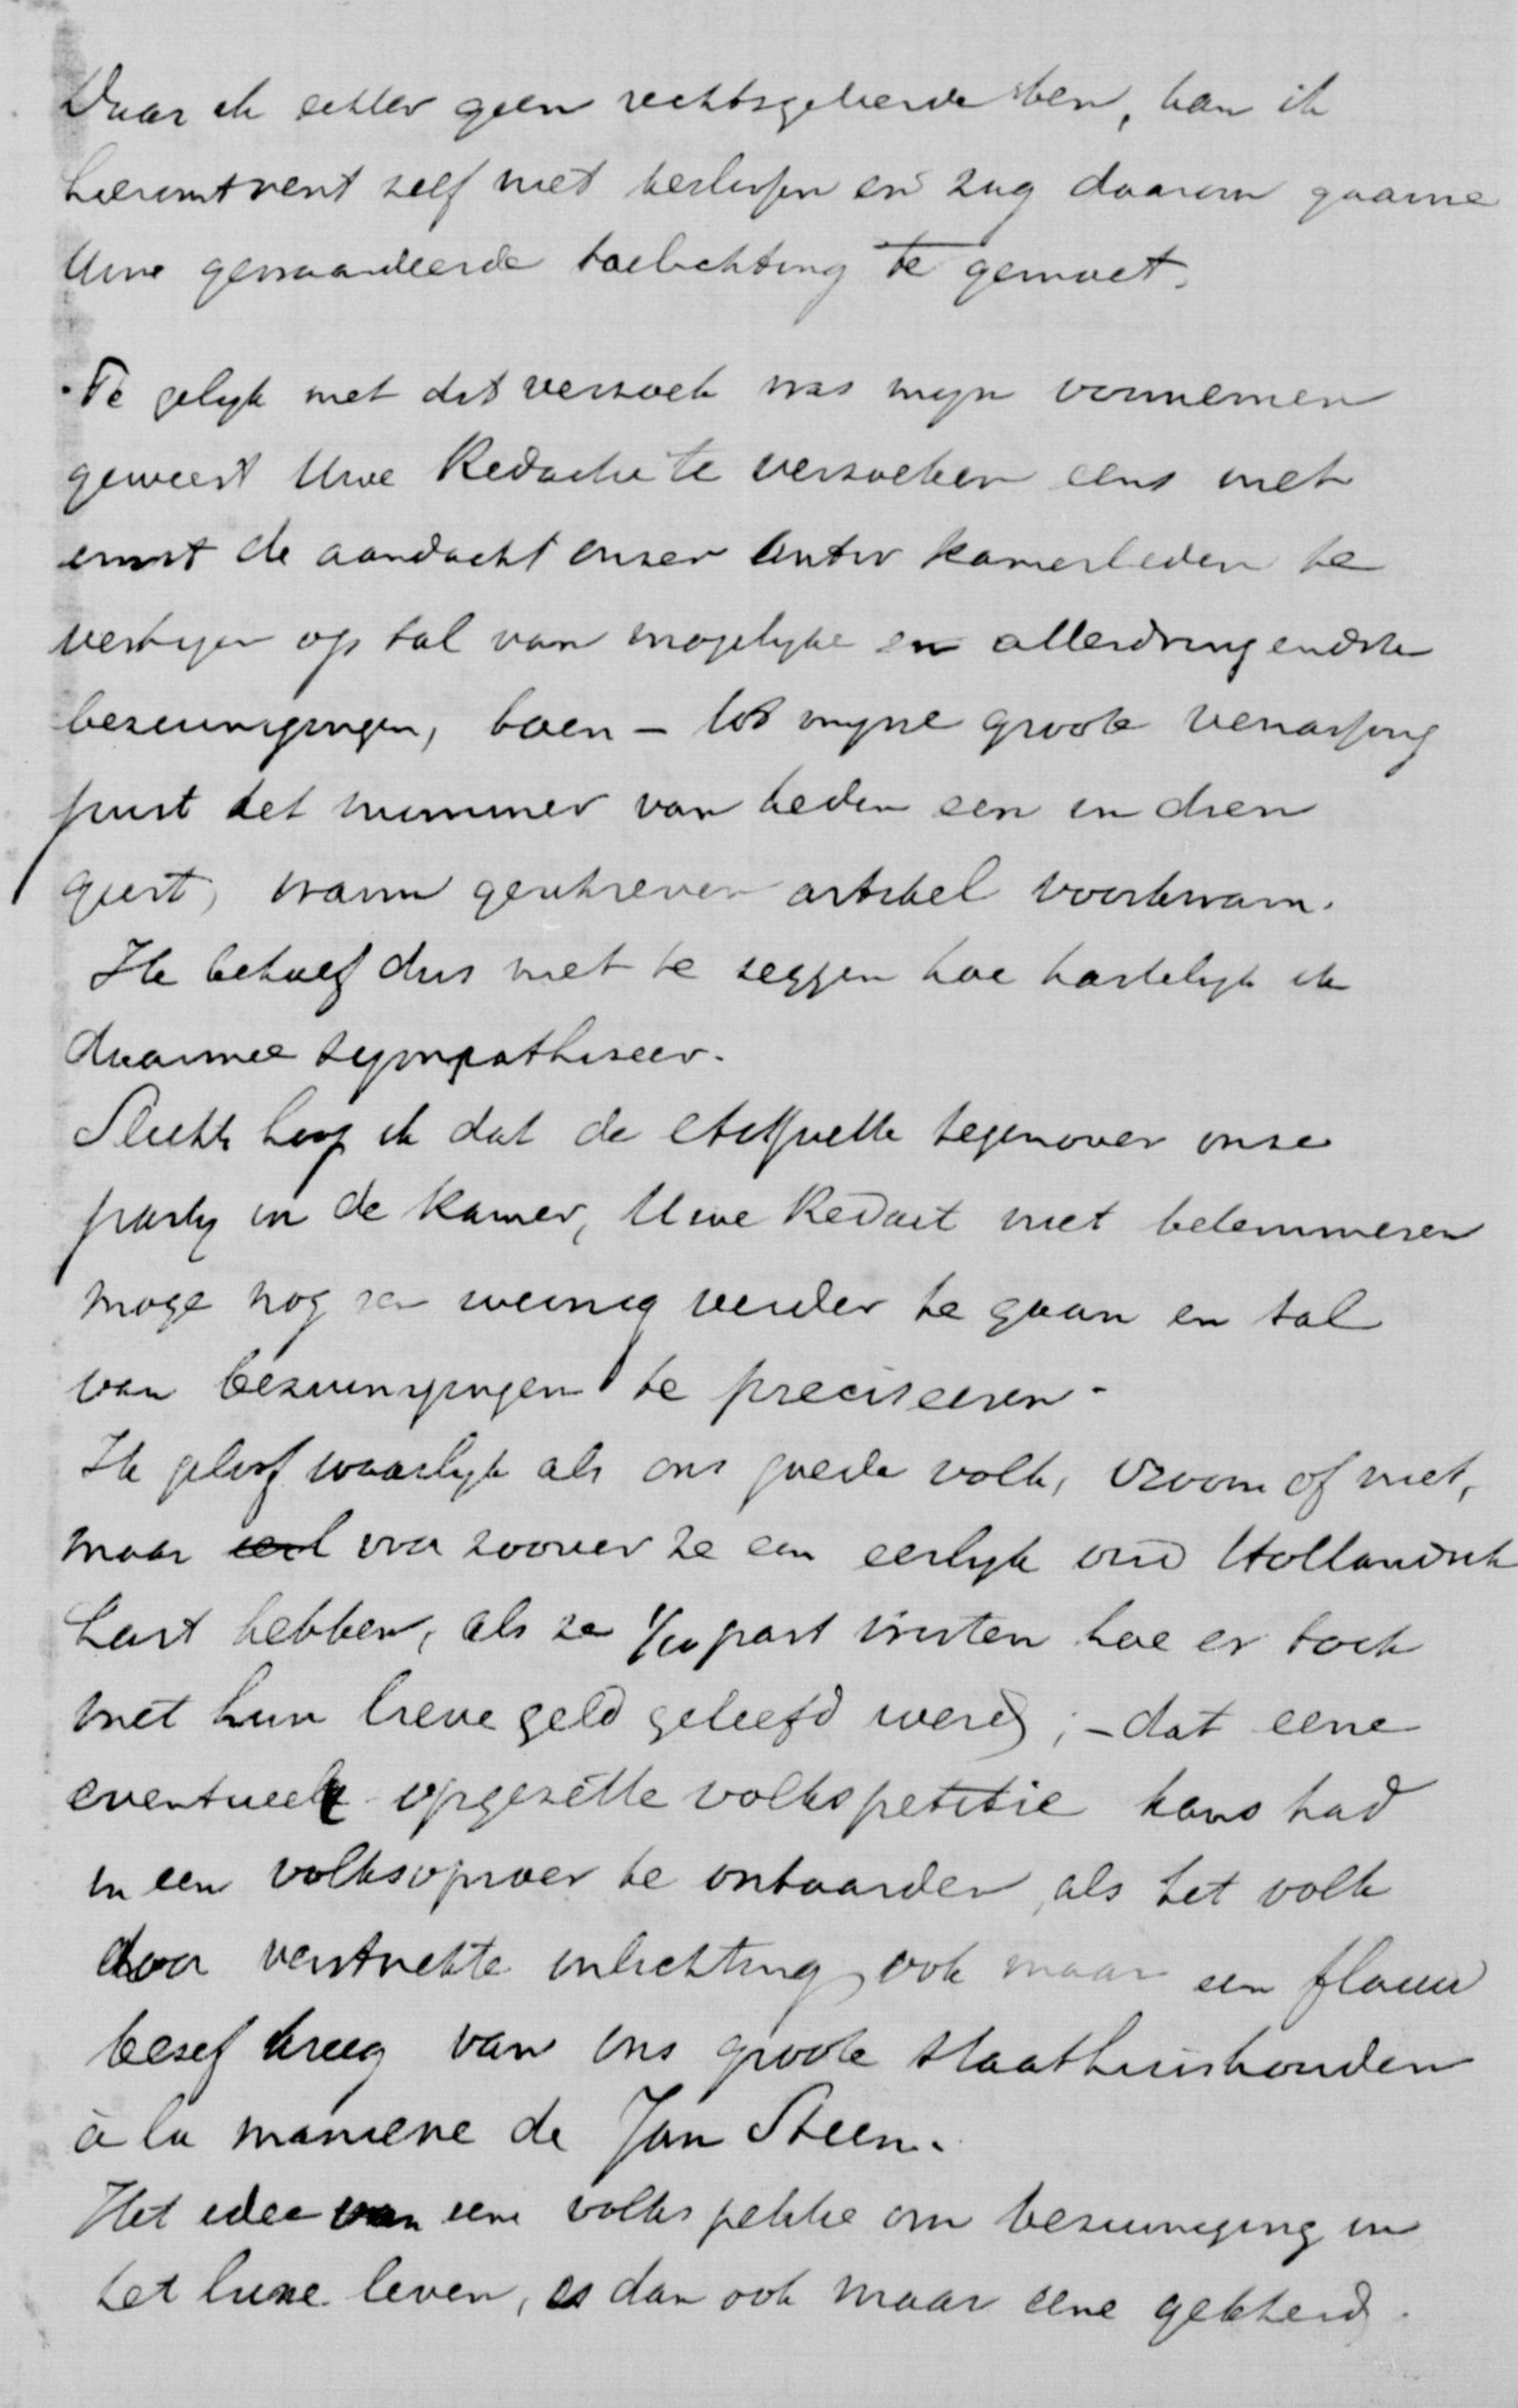 Daar ik echter geen rechtsgeleerde ben, kan ik
hieromtrent zelf niet beslissen en zag daarom gaarne
Uwe gewaardeerde toelichting te gemoet.
Te gelijk met dit verzoek was mijn voornemen
geweest Uwe Redactie te verzoeken eens met
ernst de aandacht onzer Antir kamerleden te
vestigen op tal van mogelijke en allerdringendste
bezuinigingen, toen - tot mijne groote verrassing
juist het nummer van heden een in dien
geest, warm geschreven artikel voorkwam.
Ik behoef dus niet te zeggen hoe hartelijk ik
daarmee sympathiseer.
Slechts hoop ik dat de etiquette tegenover onze
partij in de Kamer, Uwe Redact niet belemmeren
moge nog een weinig verder te gaan en tal
van bezuinigingen te preciseeren.
Ik geloof waarlijk als ons goede volk, vroom of niet,
maar voor zoover ze een eerlijk oud Hollandsch
hart hebben, als ze 1/10 part wisten hoe er toch
met hun lieve geld geleefd werd; - dat eene
eventueele opgezette volkspetitie kans had
in een volksoproer te ontaarden, als het volk
door verstrekte inlichting, ook maar een flauw
besef kreeg van ons groote staathuishouden
à la maniere de Jan Steen.
Het idee van eene volks petitie om bezuiniging in
het luxe leven, is dan ook maar eene gekheid.